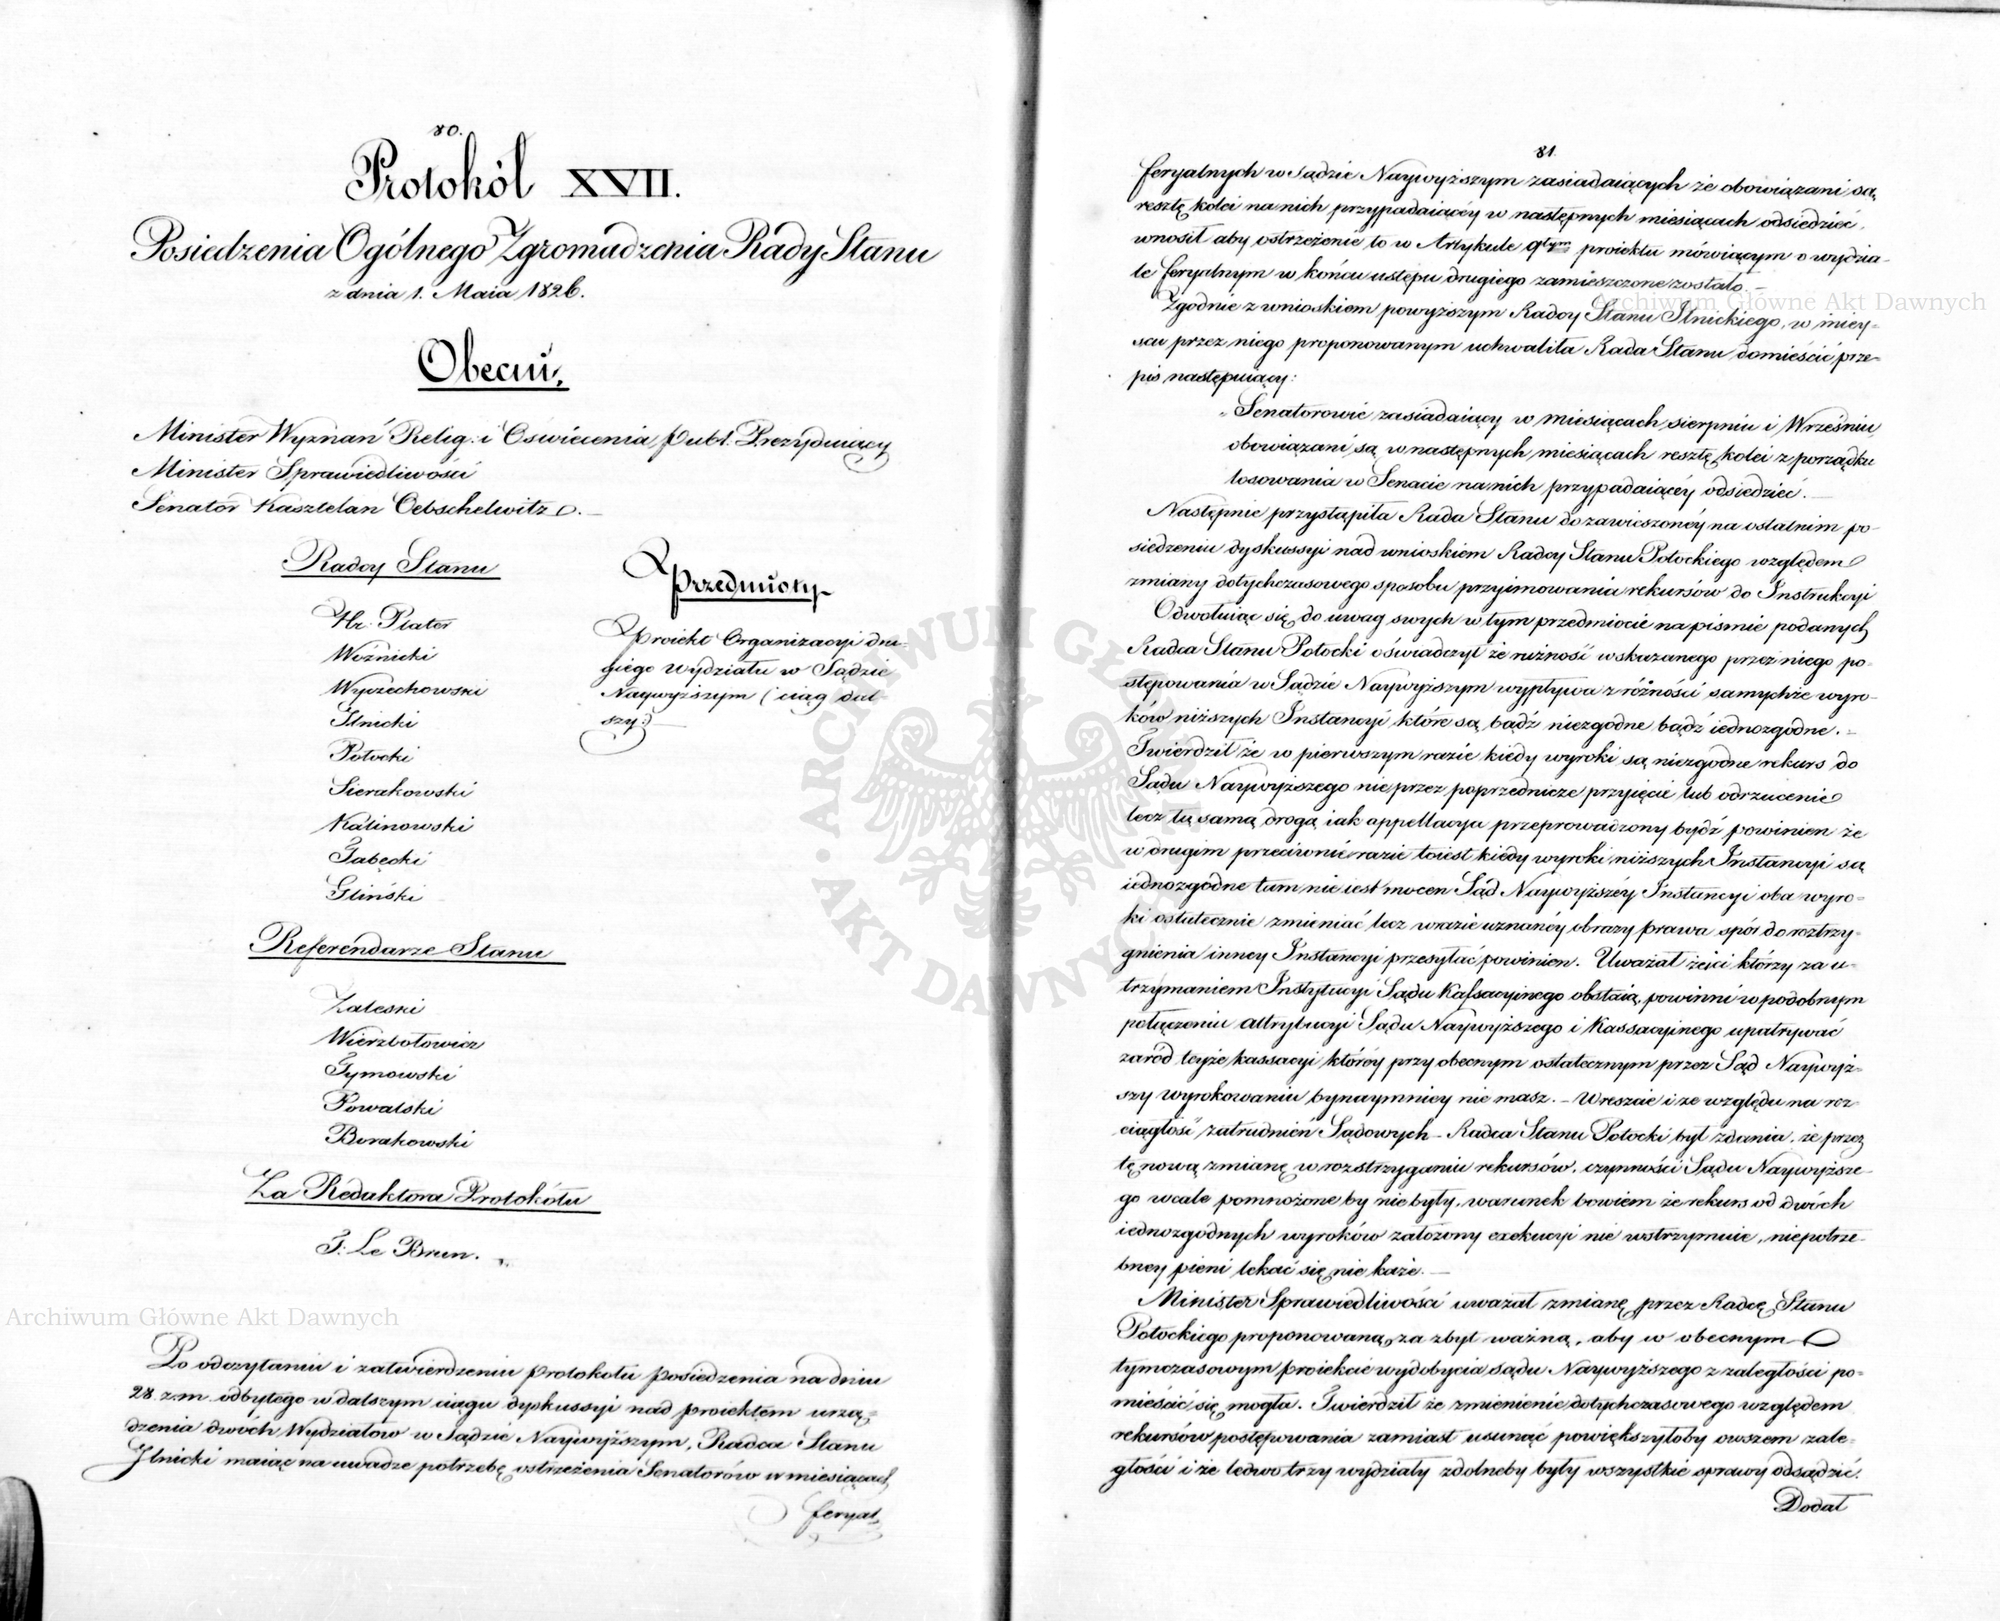 80.
Protokół XVII.
Posiedzenia Ogólnego Zgromadzenia Rady Stanu
z dnia 1. Maia 1826.
Obecni,
Minister Wyznań Relig: i Oświecenia publ. Prezyduiący
Minister Sprawiedliwości
Senator Kasztelan Oebschelwitz.
Radcy Stanu
Hr. Plater
Woźnicki
Wyczechowski
Ilnicki
Potocki
Sierakowski
Kalinowski
Łabęcki
Gliński
Przedmioty
Proiekt Organizacyi dru-
giego wydziału w Sądzie
Naywyższym (ciąg dal-
szy:)
Referendarze Stanu
Zaleski
Wierzbołowicz
Tymowski
Powalski
Borakowski
Za Redaktora Protokółu
J: Le Brun.
Po odczytaniu i zatwierdzeniu protokółu posiedzenia na dniu
28 z.m. odbytego w dalszym ciągu dyskussyi nad proiektem urzą-
dzenia dwóch Wydziałów w Sądzie Naywyższym, Radca Stanu
Ilnicki maiąc na uwadze potrzebę ostrzeżenia Senatorów w miesiącach
feryal
81.
feryalnych w Sądzie Naywyższym zasiadaiących że obowiązani są,
resztę kolei na nich przypadaiącéy w następnych miesiącach odsiedzieć,
wnosił aby ostrzeżenie to w Artykule 9tym proiektu mówiącym o wydzia-
le feryalnym w końcu ustępu drugiego zamieszczone zostało.
Zgodnie z wnioskiem powyższym Radcy Stanu Ilnickiego, w miey-
scu przez niego proponowanym uchwaliła Rada Stanu domieścić prze-
pis następuiący:
„Senatorowie zasiadaiący w miesiącach sierpniu i Wrześniu,
obowiązani są w następnych miesiącach resztę kolei z porządku
losowania w Senacie na nich przypadaiącéy odsiedzieć.
Następnie przystąpiła Rada Stanu do zawieszonéy na ostatnim po-
siedzeniu dyskussyi nad wnioskiem Radcy Stanu Potockiego względem
zmiany dotychczasowego sposobu przyimowania rekursów do Instrukcyi
Odwołuiąc się do uwag swych w tym przedmiocie na piśmie podanych
Radca Stanu Potocki oświadczył że różność wskazanego przez niego po-
stępowania w Sądzie Naywyższym wypływa z różności samychże wyro-
ków niższych Instancyi które są bądź niezgodne bądź iednozgodne.
Twierdził że w pierwszym razie kiedy wyroki są niezgodne rekurs do
Sądu Naywyższego nie przez poprzednicze przyięcie lub odrzucenie
lecz tą samą drogą iak appellacya przeprowadzony bydź powinien że
w drugim przeciwnie razie toiest kiedy wyroki niższych Instancyi są
iednozgodne tam nie iest mocen Sąd Naywyższéy Instancyi oba wyro-
ki ostatecznie zmieniać lecz w razie uznanéy obrazy prawa spór do roztrzy-
gnienia inney Instancyi przesyłać powinien. Uważał że ci którzy za u-
trzymaniem Instytucyi Sądu Kassacyinego obstaią, powinni w podobnym
połączeniu attrybucyi Sądu Naywyższego i Kassacyinego upatrywać
zaród teyże kassacyi któréy przy obecnym ostatecznym przez Sąd Naywyż-
szy wyrokowaniu bynaymniey nie masz. – Wreszcie i ze względu na roz-
ciągłość zatrudnień Sądowych – Radca Stanu Potocki był zdania, że przez
tę nową zmianę w rozstrzyganiu rekursów, czynności Sądu Naywyższe-
go wcale pomnożone by nie były, warunek bowiem że rekurs od dwóch
iednozgodnych wyroków założony exekucyi nie wstrzymuie, niepotrze-
bney pieni lękać się nie każe.
Minister Sprawiedliwości uważał zmianę przez Radcę Stanu
Potockiego proponowaną za zbyt ważną, aby w obecnym
tymczasowym proiekcie wydobycia sądu Naywyższego z zaległości po-
mieścić się mogła. Twierdził że zmienienie dotychczasowego względem
rekursów postępowania zamiast usunąć powiększyłoby owszem zale-
głości i że ledwo trzy wydziały zdolneby były wszystkie sprawy odsądzić.
Dodał
Archiwum Główne Akt Dawnych
Archiwum Główne Akt Dawnych
ARCHIWUM GŁÓWNE AKT DAWNYCH